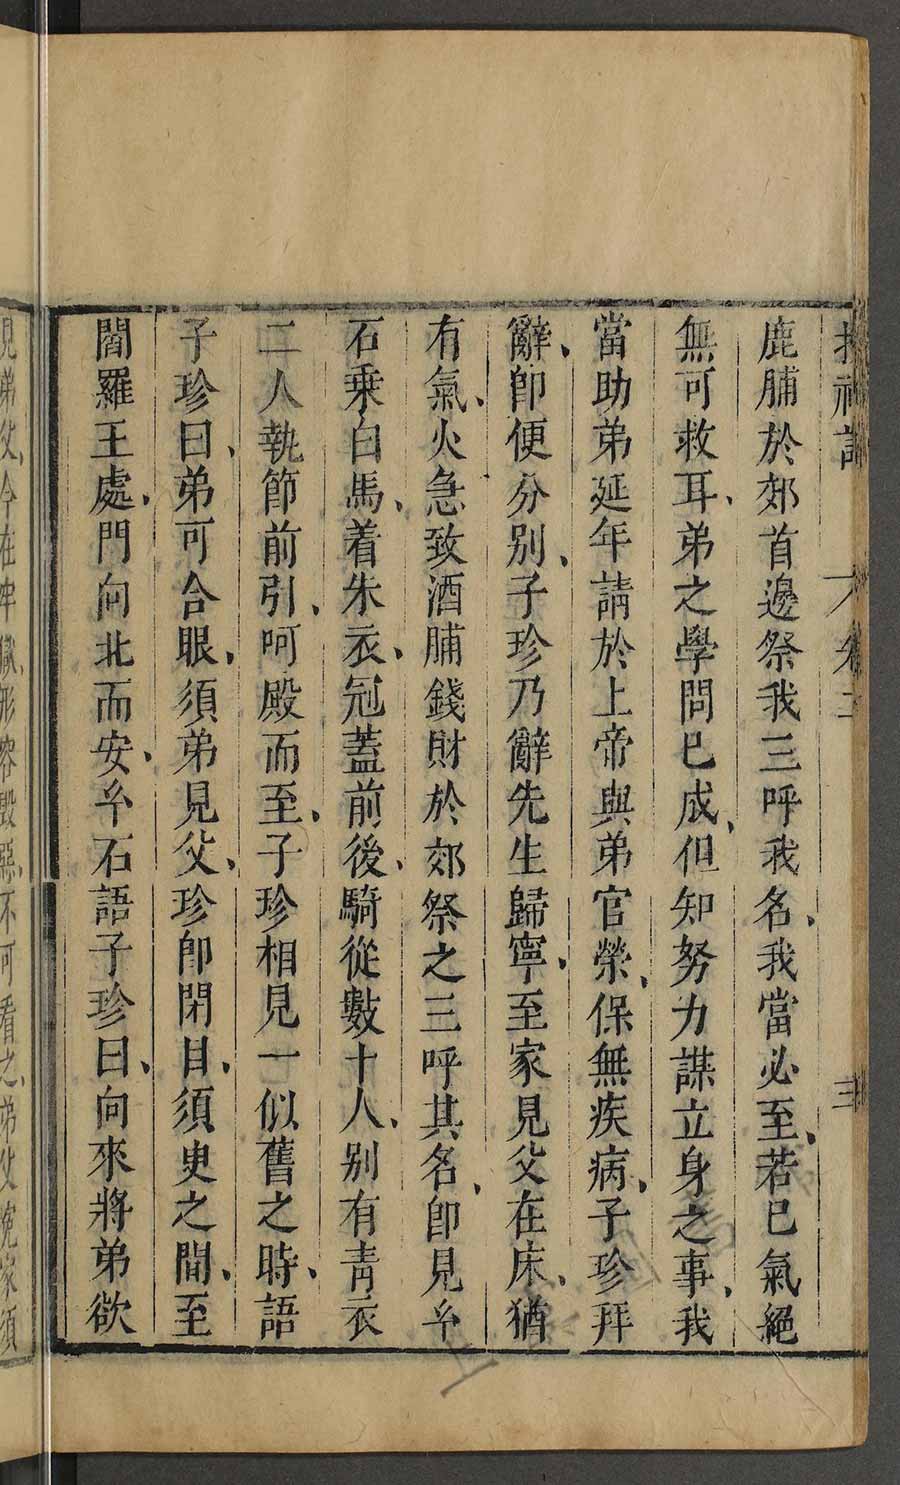 搜神記 卷二 三
鹿脯於郊首邊祭我三呼我名、我當必至、若已氣絕
無可救耳、弟之學問已成、但知努力謀立身之事、我
當助弟延年請於上帝與弟官榮、保無疾病、子珍拜
辭、卽便分别、子珍乃辭先生歸寧、至家見父在床、猶
有氣、火急致酒脯錢財於郊祭之三呼其名、卽見㕕
石乘白馬、着朱衣、冠蓋前後、騎從數十人、别有靑衣
二人執節前引、呵殿而至、子珍相見一似舊之時、語
子珍曰、弟可合眼、須弟見父、珍卽閉目、須臾之間、至
閻羅王處、門向北而安、㕕石語子珍曰、向來將弟欲
見弟父、今在牢獄、形容毀惡、不可看之、弟父冤家須